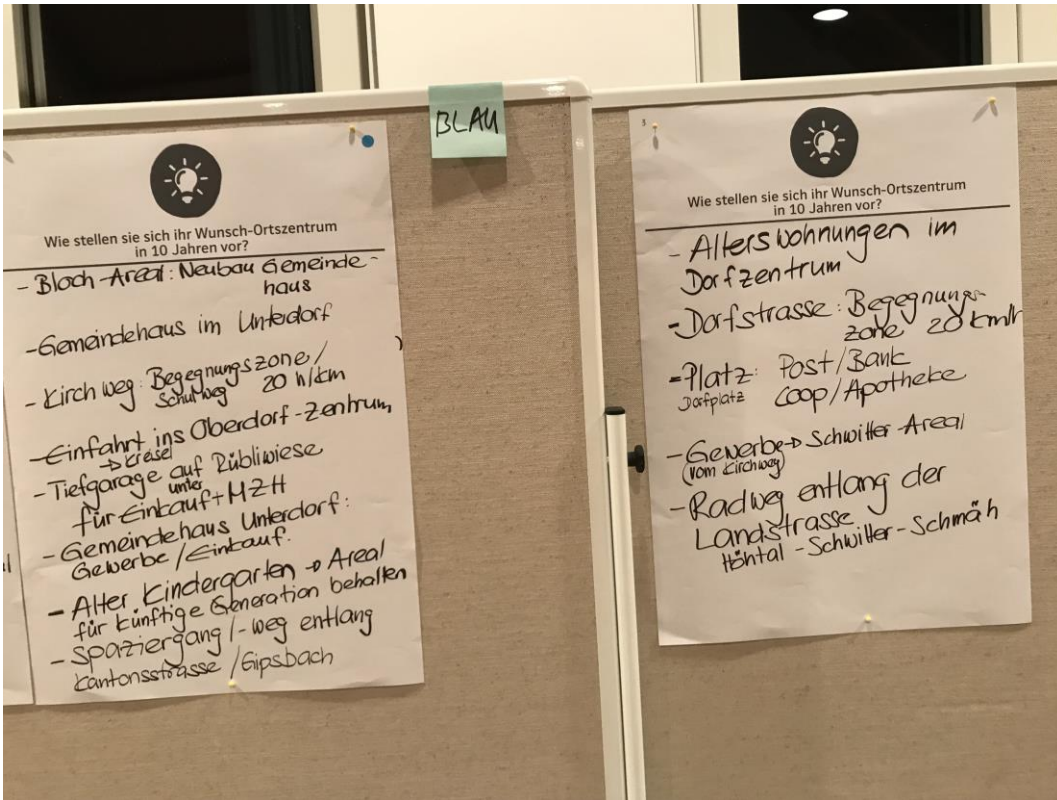 BLAU
Wie stellen sie sich ihr Wunsch-Ortszentrum
in 10 Jahren vor?
- Bloch-Areal: Neubau Gemeinde-
haus
- Gemeindehaus im Unterdorf
- Kirchweg: Begegnungszone /
Schulweg 20 h/km
- Einfahrt ins Oberdorf-Zentrum
→ Kreisel
- Tiefgarage auf Rübliwiese
unter
für Einkauf + MZH
- Gemeindehaus Unterdorf:
Gewerbe / Einkauf.
- Alter Kindergarten → Areal
für künftige Generation behalten
- Spaziergang /-weg entlang
Kantonsstrasse / Gipsbach
Wie stellen sie sich ihr Wunsch-Ortszentrum
in 10 Jahren vor?
- Alterswohnungen im
Dorfzentrum
- Dorfstrasse: Begegnungs-
zone 20 km/h
- Platz: Post/Bank
Dorfplatz Coop/Apotheke
- Gewerbe → Schwitter-Areal
(vom Kirchweg)
- Radweg entlang der
Landstrasse
Höhtal - Schwitter - Schmäh